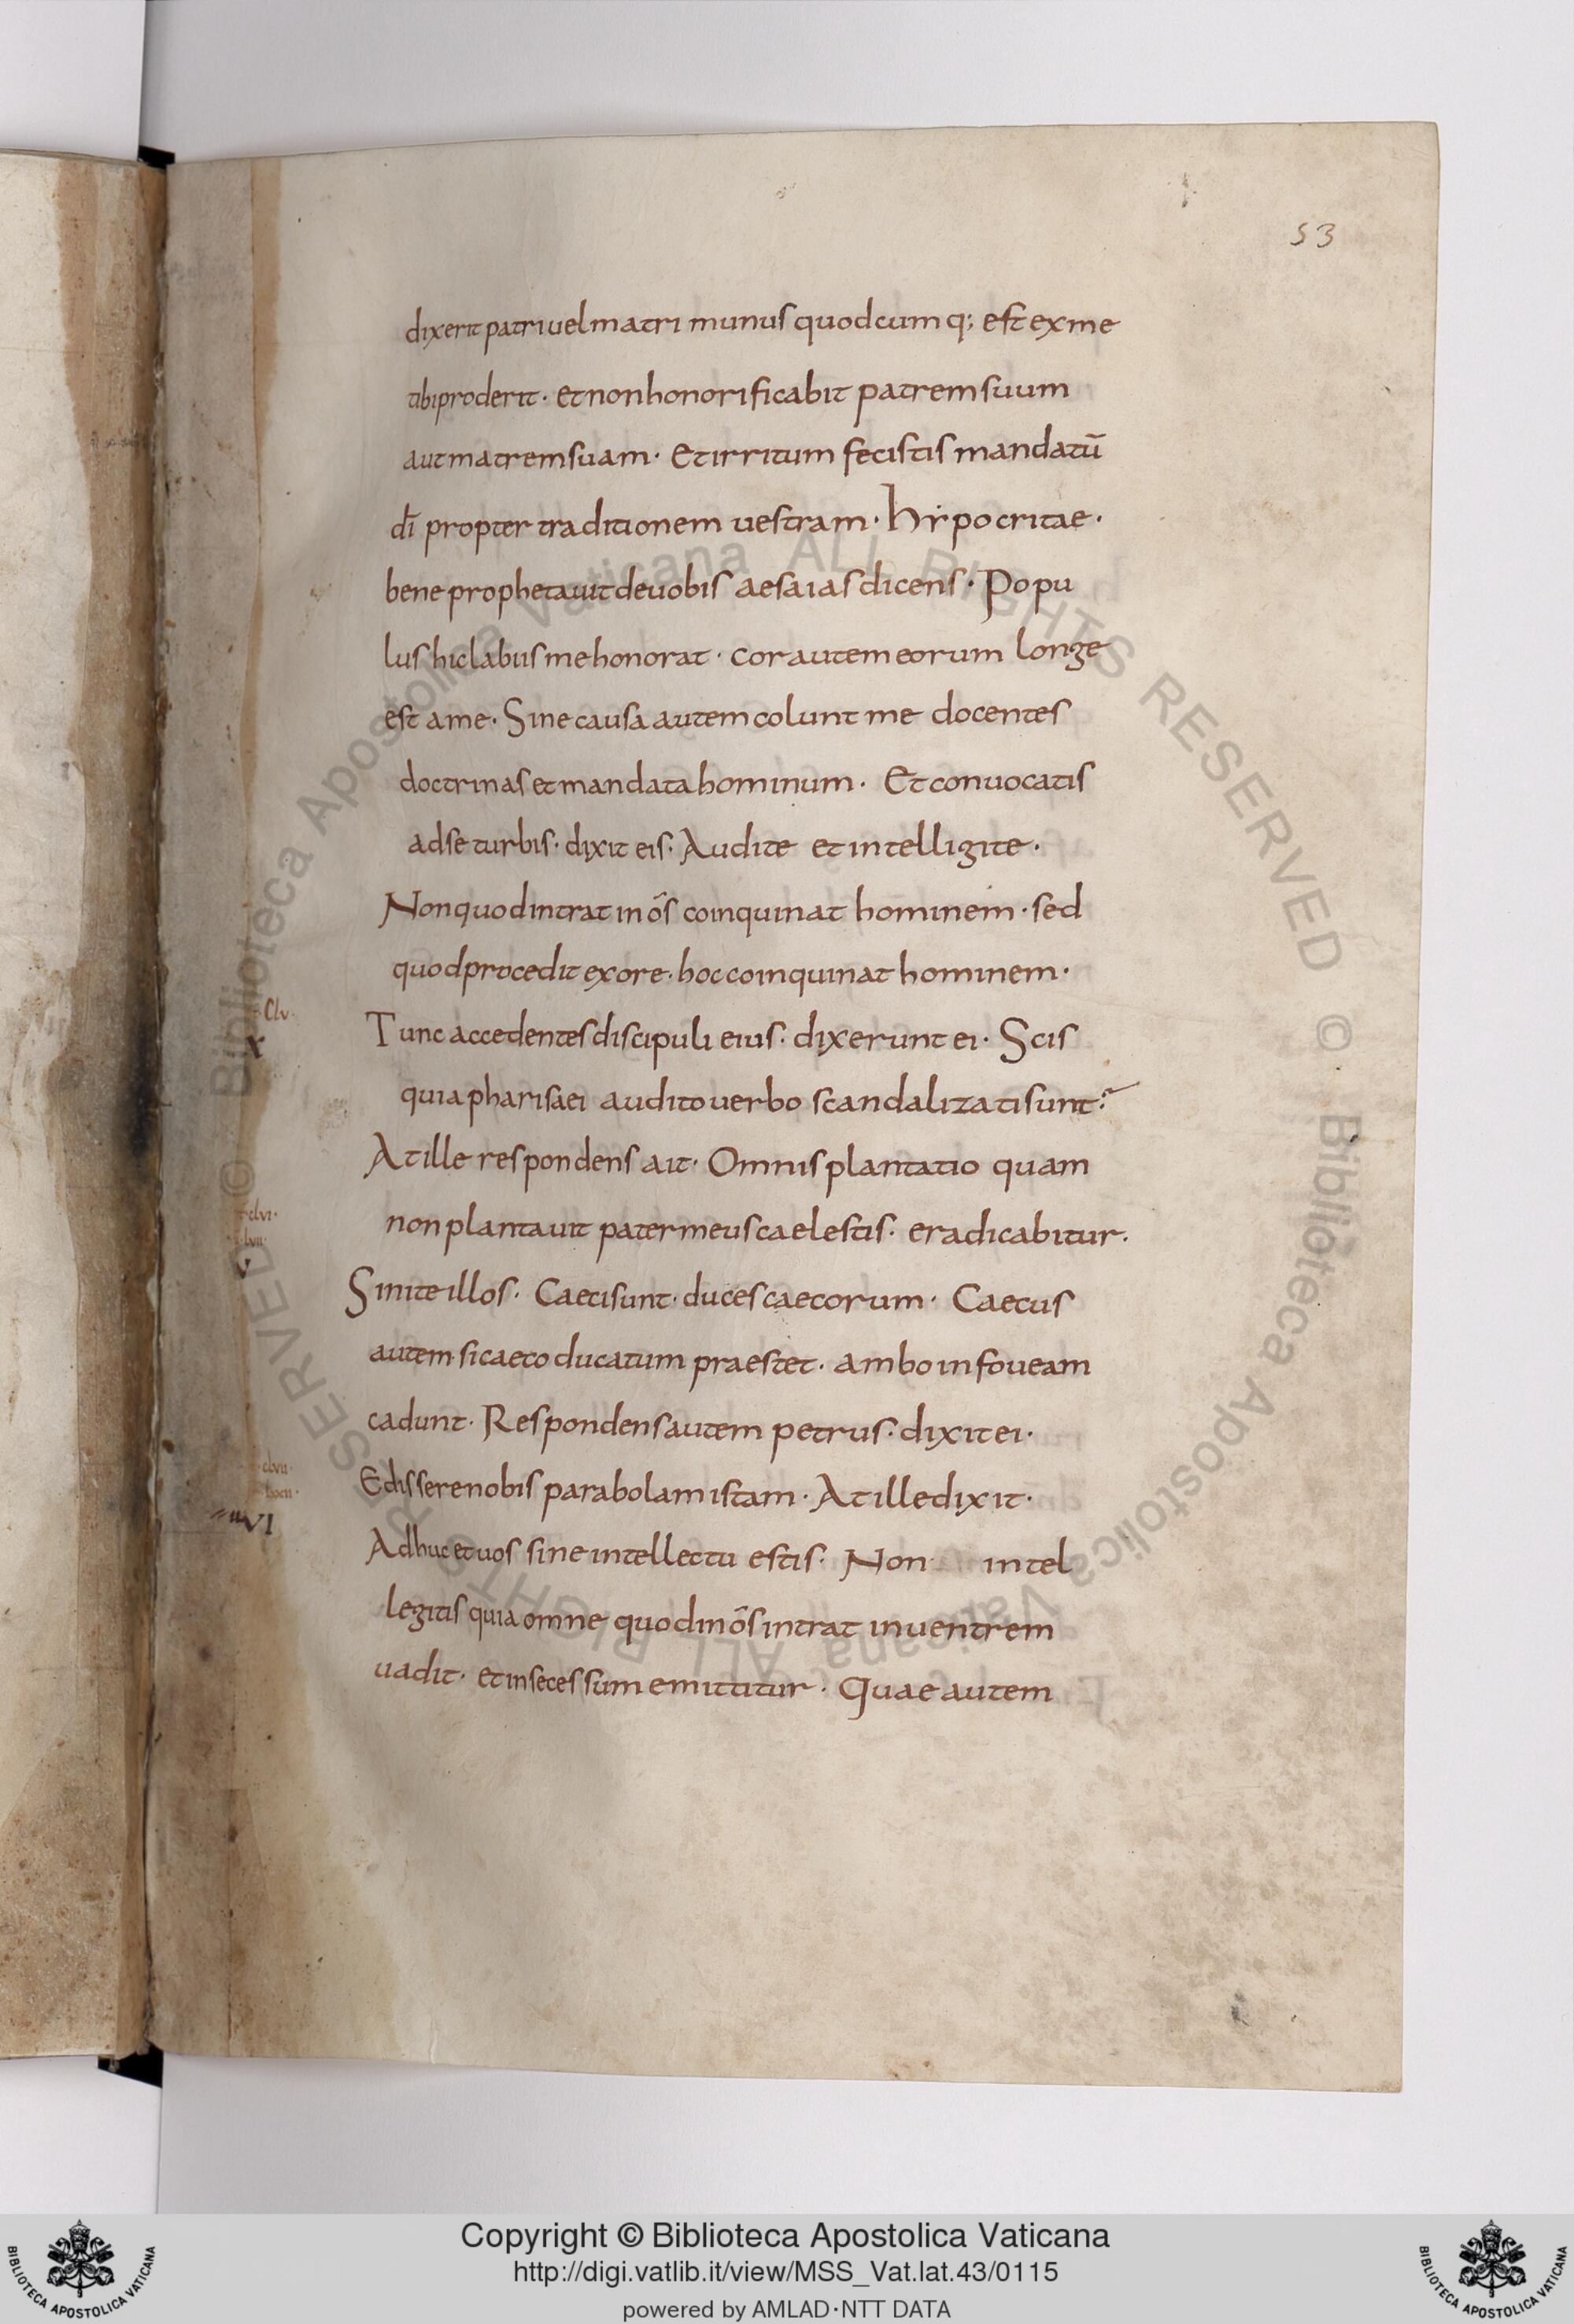 53
dixerit patri uel matri munus quodcumq; est ex me
tibi proderit · et non honorificabit patrem suum
aut matrem suam · Et irritum fecistis mandatū
dī propter traditionem uestram · hẏpocritae ·
bene prophetauit de uobis aesaias dicens · Popu
lus hic labiis me honorat · cor autem eorum longe
est a me · Sine causa autem colunt me docentes
doctrinas et mandata hominum · Et conuocatis
ad se turbis · dixit eis · Audite et intelligite ·
Non quod intrat in os coinquinat hominem · sed
quod procedit ex ore · hoc coinquinat hominem ·
clv·
X
Tunc accedentes discipuli eius · dixerunt ei · Scis
quia pharisaei audito uerbo scandalizati sunt?
At ille respondens ait · Omnis plantatio quam
clvi·
non plantauit pater meus caelestis · eradicabitur ·
lvii·
V
Sinite illos · Caeci sunt · duces caecorum · Caecus
autem si caeco ducatum praestet · ambo in foueam
cadunt · Respondens autem petrus · dixit ei ·
clvii·
Edissere nobis parabolam istam · At ille dixit ·
VI
Adhuc et uos sine intellectu estis · Non intel
legitis quia omne quod in os intrat in uentrem
uadit · et in secessum emittitur · Quae autem
© Biblioteca Apostolica Vaticana ALL RIGHTS RESERVED
© Biblioteca Apostolica Vaticana ALL RIGHTS RESERVED
Copyright © Biblioteca Apostolica Vaticana
http://digi.vatlib.it/view/MSS_Vat.lat.43/0115
powered by AMLAD·NTT DATA
BIBLIOTECA APOSTOLICA VATICANA
BIBLIOTECA APOSTOLICA VATICANA